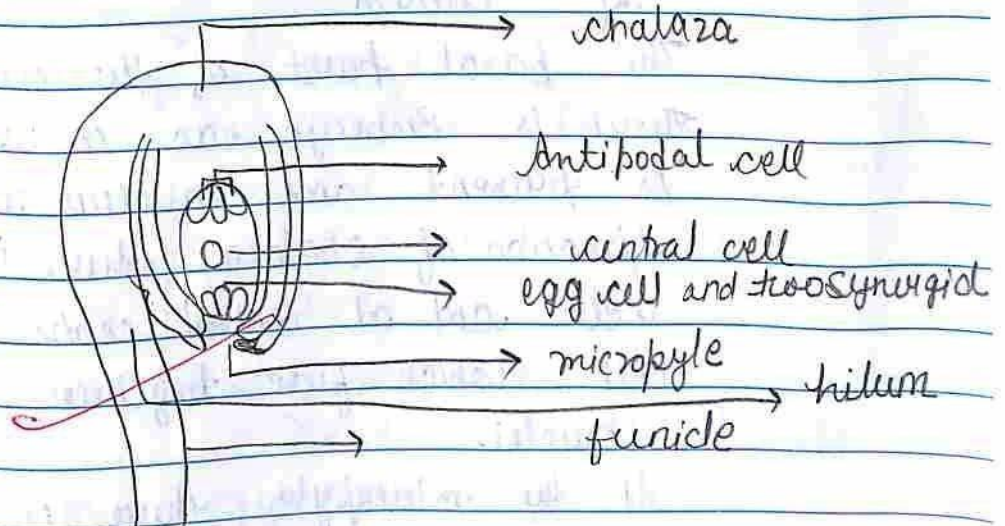 chalaza
Antipodal cell
central cell
egg cell and two synergid
micropyle
hilum
funicle